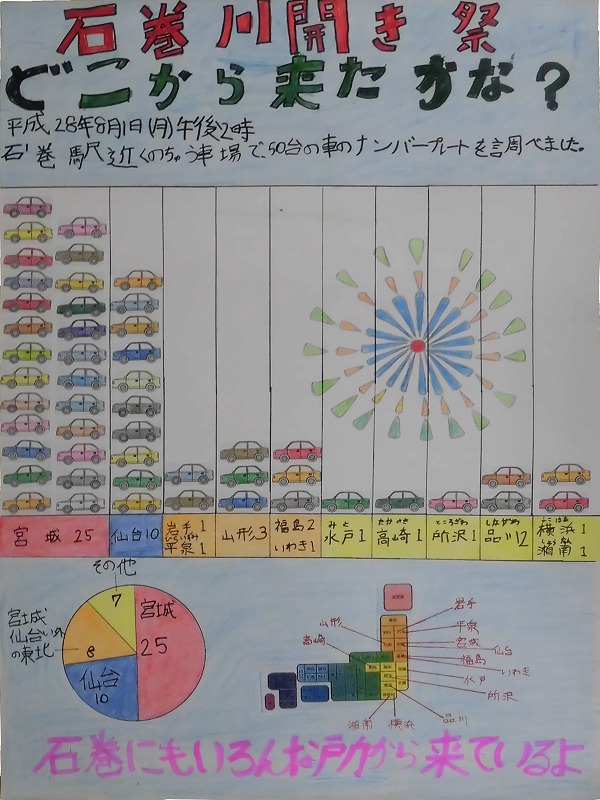 石巻川開き祭
どこから来たかな？
平成28年8月1日(月)午後2時
石巻駅近くのちゅう車場で、50台の車のナンバープレートを調べました。
宮城 25
仙台10
岩手 1
平泉 1
山形 3
福島 2
いわき 1
みと
水戸 1
たかさき
高崎 1
ところざわ
所沢 1
しながわ
品川 2
よこはま
横浜 1
しょうなん
湘南 1
その他
7
宮城
25
宮城
仙台以外
の東北
8
仙台
10
岩手
平泉
宮城
仙台
福島
いわき
水戸
所沢
品川
横浜
湘南
高崎
山形
石巻にもいろんな所から来ているよ